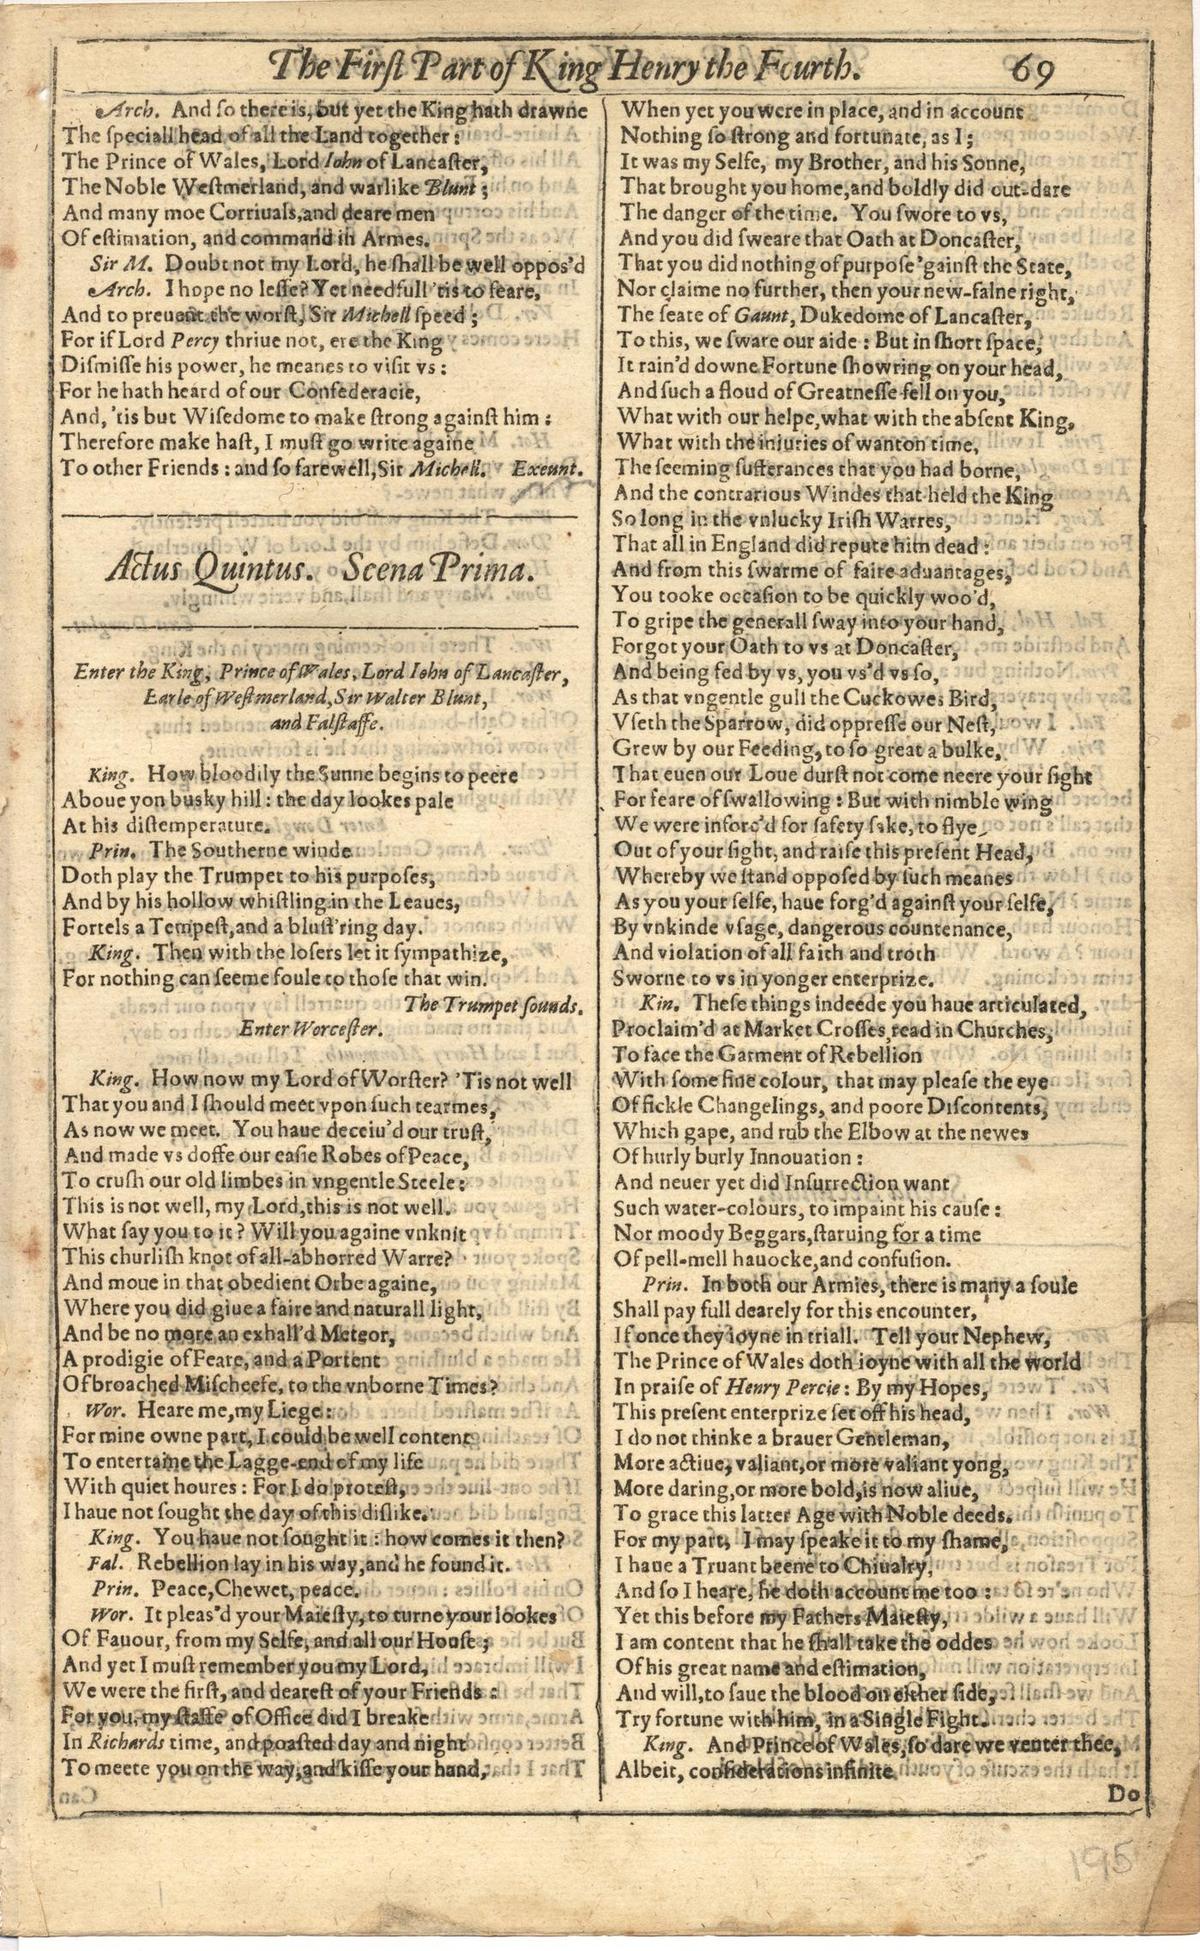 The First Part of King Henry the Fourth. 69
Arch. And so there is, but yet the King hath drawne
The speciall head of all the Land together:
The Prince of Wales, Lord Iohn of Lancaster,
The Noble Westmerland, and warlike Blunt;
And many moe Corriuals, and deare men
Of estimation, and command in Armes.
Sir M. Doubt not my Lord, he shall be well oppos'd
Arch. I hope no lesse? Yet needfull 'tis to feare,
And to preuent the worst, Sir Michell speed;
For if Lord Percy thriue not, ere the King
Dismisse his power, he meanes to visit vs:
For he hath heard of our Confederacie,
And, 'tis but Wisedome to make strong against him:
Therefore make hast, I must go write againe
To other Friends: and so farewell, Sir Michell. Exeunt.
Actus Quintus. Scena Prima.
Enter the King, Prince of Wales, Lord Iohn of Lancaster,
Earle of Westmerland, Sir Walter Blunt,
and Falstaffe.
King. How bloodily the Sunne begins to peere
Aboue yon busky hill: the day lookes pale
At his distemperature.
Prin. The Southerne winde
Doth play the Trumpet to his purposes,
And by his hollow whistling in the Leaues,
Fortels a Tempest, and a blust'ring day.
King. Then with the losers let it sympathize,
For nothing can seeme foule to those that win.
The Trumpet sounds.
Enter Worcester.
King. How now my Lord of Worster? 'Tis not well
That you and I should meet vpon such tearmes,
As now we meet. You haue deceiu'd our trust,
And made vs doffe our easie Robes of Peace,
To crush our old limbes in vngentle Steele:
This is not well, my Lord, this is not well.
What say you to it? Will you againe vnknit
This churlish knot of all-abhorred Warre?
And moue in that obedient Orbe againe,
Where you did giue a faire and naturall light,
And be no more an exhall'd Meteor,
A prodigie of Feare, and a Portent
Of broached Mischeefe, to the vnborne Times?
Wor. Heare me, my Liege:
For mine owne part, I could be well content
To entertaine the Lagge-end of my life
With quiet houres: For I do protest,
I haue not sought the day of this dislike.
King. You haue not sought it: how comes it then?
Fal. Rebellion lay in his way, and he found it.
Prin. Peace, Chewet, peace.
Wor. It pleas'd your Maiesty, to turne your lookes
Of Fauour, from my Selfe, and all our House;
And yet I must remember you my Lord,
We were the first, and dearest of your Friends:
For you, my staffe of Office did I breake
In Richards time, and poasted day and night
To meete you on the way, and kisse your hand,
When yet you were in place, and in account
Nothing so strong and fortunate, as I;
It was my Selfe, my Brother, and his Sonne,
That brought you home, and boldly did out-dare
The danger of the time. You swore to vs,
And you did sweare that Oath at Doncaster,
That you did nothing of purpose 'gainst the State,
Nor claime no further, then your new-falne right,
The seate of Gaunt, Dukedome of Lancaster,
To this, we sware our aide: But in short space,
It rain'd downe Fortune showring on your head,
And such a floud of Greatnesse fell on you,
What with our helpe, what with the absent King,
What with the iniuries of wanton time,
The seeming sufferances that you had borne,
And the contrarious Windes that held the King
So long in the vnlucky Irish Warres,
That all in England did repute him dead:
And from this swarme of faire aduantages,
You tooke occasion to be quickly woo'd,
To gripe the generall sway into your hand,
Forgot your Oath to vs at Doncaster,
And being fed by vs, you vs'd vs so,
As that vngentle gull the Cuckowes Bird,
Vseth the Sparrow, did oppresse our Nest,
Grew by our Feeding, to so great a bulke,
That euen our Loue durst not come neere your sight
For feare of swallowing: But with nimble wing
We were inforc'd for safety sake, to flye
Out of your sight, and raise this present Head,
Whereby we stand opposed by such meanes
As you your selfe, haue forg'd against your selfe,
By vnkinde vsage, dangerous countenance,
And violation of all faith and troth
Sworne to vs in yonger enterprize.
Kin. These things indeede you haue articulated,
Proclaim'd at Market Crosses, read in Churches,
To face the Garment of Rebellion
With some fine colour, that may please the eye
Of fickle Changelings, and poore Discontents,
Which gape, and rub the Elbow at the newes
Of hurly burly Innouation:
And neuer yet did Insurrection want
Such water-colours, to impaint his cause:
Nor moody Beggars, staruing for a time
Of pell-mell hauocke, and confusion.
Prin. In both our Armies, there is many a soule
Shall pay full dearely for this encounter,
If once they ioyne in triall. Tell your Nephew,
The Prince of Wales doth ioyne with all the world
In praise of Henry Percie: By my Hopes,
This present enterprize set off his head,
I do not thinke a brauer Gentleman,
More actiue, valiant, or more valiant yong,
More daring, or more bold, is now aliue,
To grace this latter Age with Noble deeds.
For my part, I may speake it to my shame,
I haue a Truant beene to Chiualry,
And so I heare, he doth account me too:
Yet this before my Fathers Maiesty,
I am content that he shall take the oddes
Of his great name and estimation,
And will, to saue the blood on either side,
Try fortune with him, in a Single Fight.
King. And Prince of Wales, so dare we venter thee,
Albeit, considerations infinite
Do
195